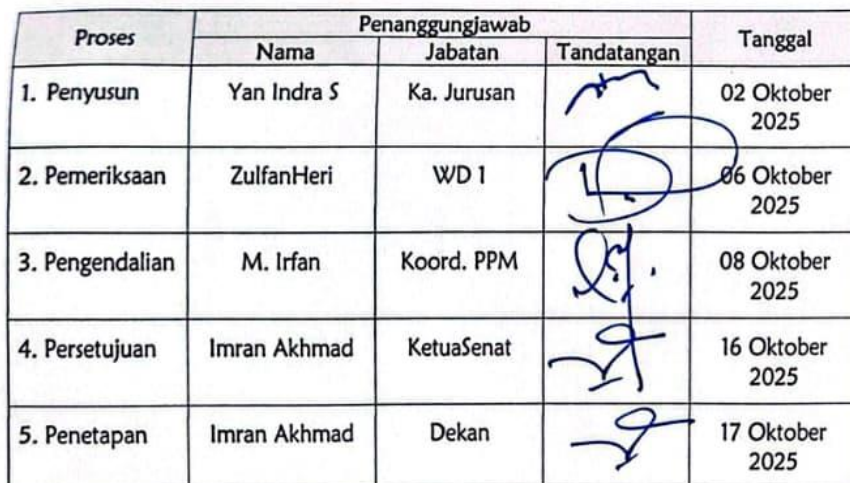 Proses Penanggungjawab Tanggal
Nama Jabatan Tandatangan
1. Penyusun Yan Indra S Ka. Jurusan 02 Oktober
2025
2. Pemeriksaan ZulfanHeri WD 1 06 Oktober
2025
3. Pengendalian M. Irfan Koord. PPM 08 Oktober
2025
4. Persetujuan Imran Akhmad KetuaSenat 16 Oktober
2025
5. Penetapan Imran Akhmad Dekan 17 Oktober
2025